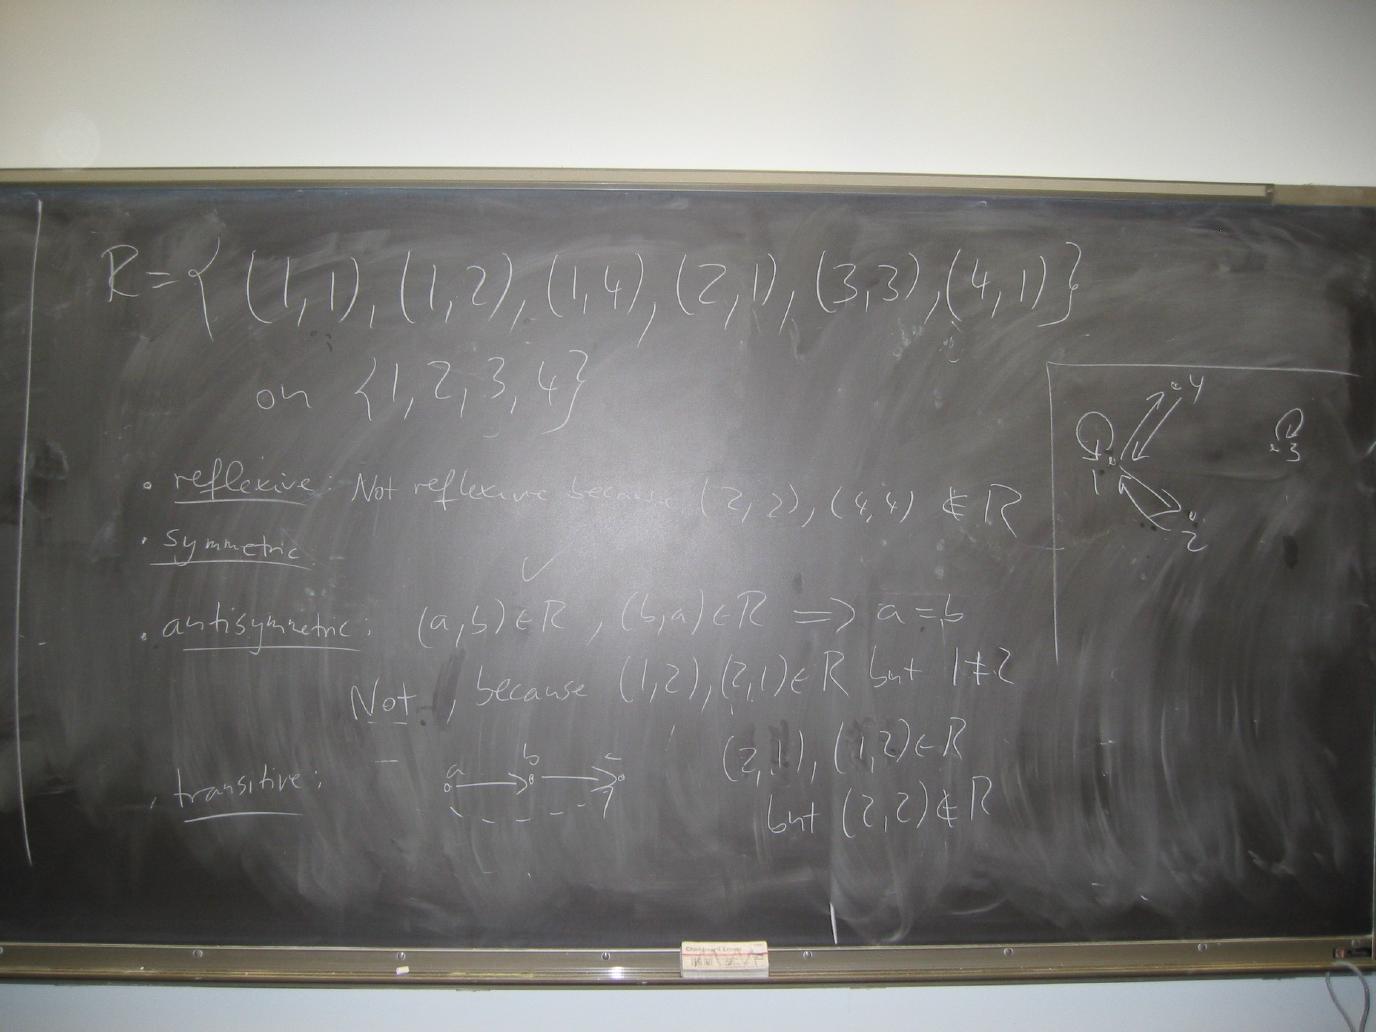 R = { (1,1), (1,2), (1,4), (2,1), (3,3), (4,1) }
on {1, 2, 3, 4}
• reflexive: Not reflexive because (2,2), (4,4) ∉ R
• symmetric ✓
• antisymmetric: (a,b) ∈ R, (b,a) ∈ R ⇒ a = b
Not, because (1,2), (2,1) ∈ R but 1 ≠ 2
• transitive:
a b c
(2,1), (1,2) ∈ R
but (2,2) ∉ R
4
3
1
2